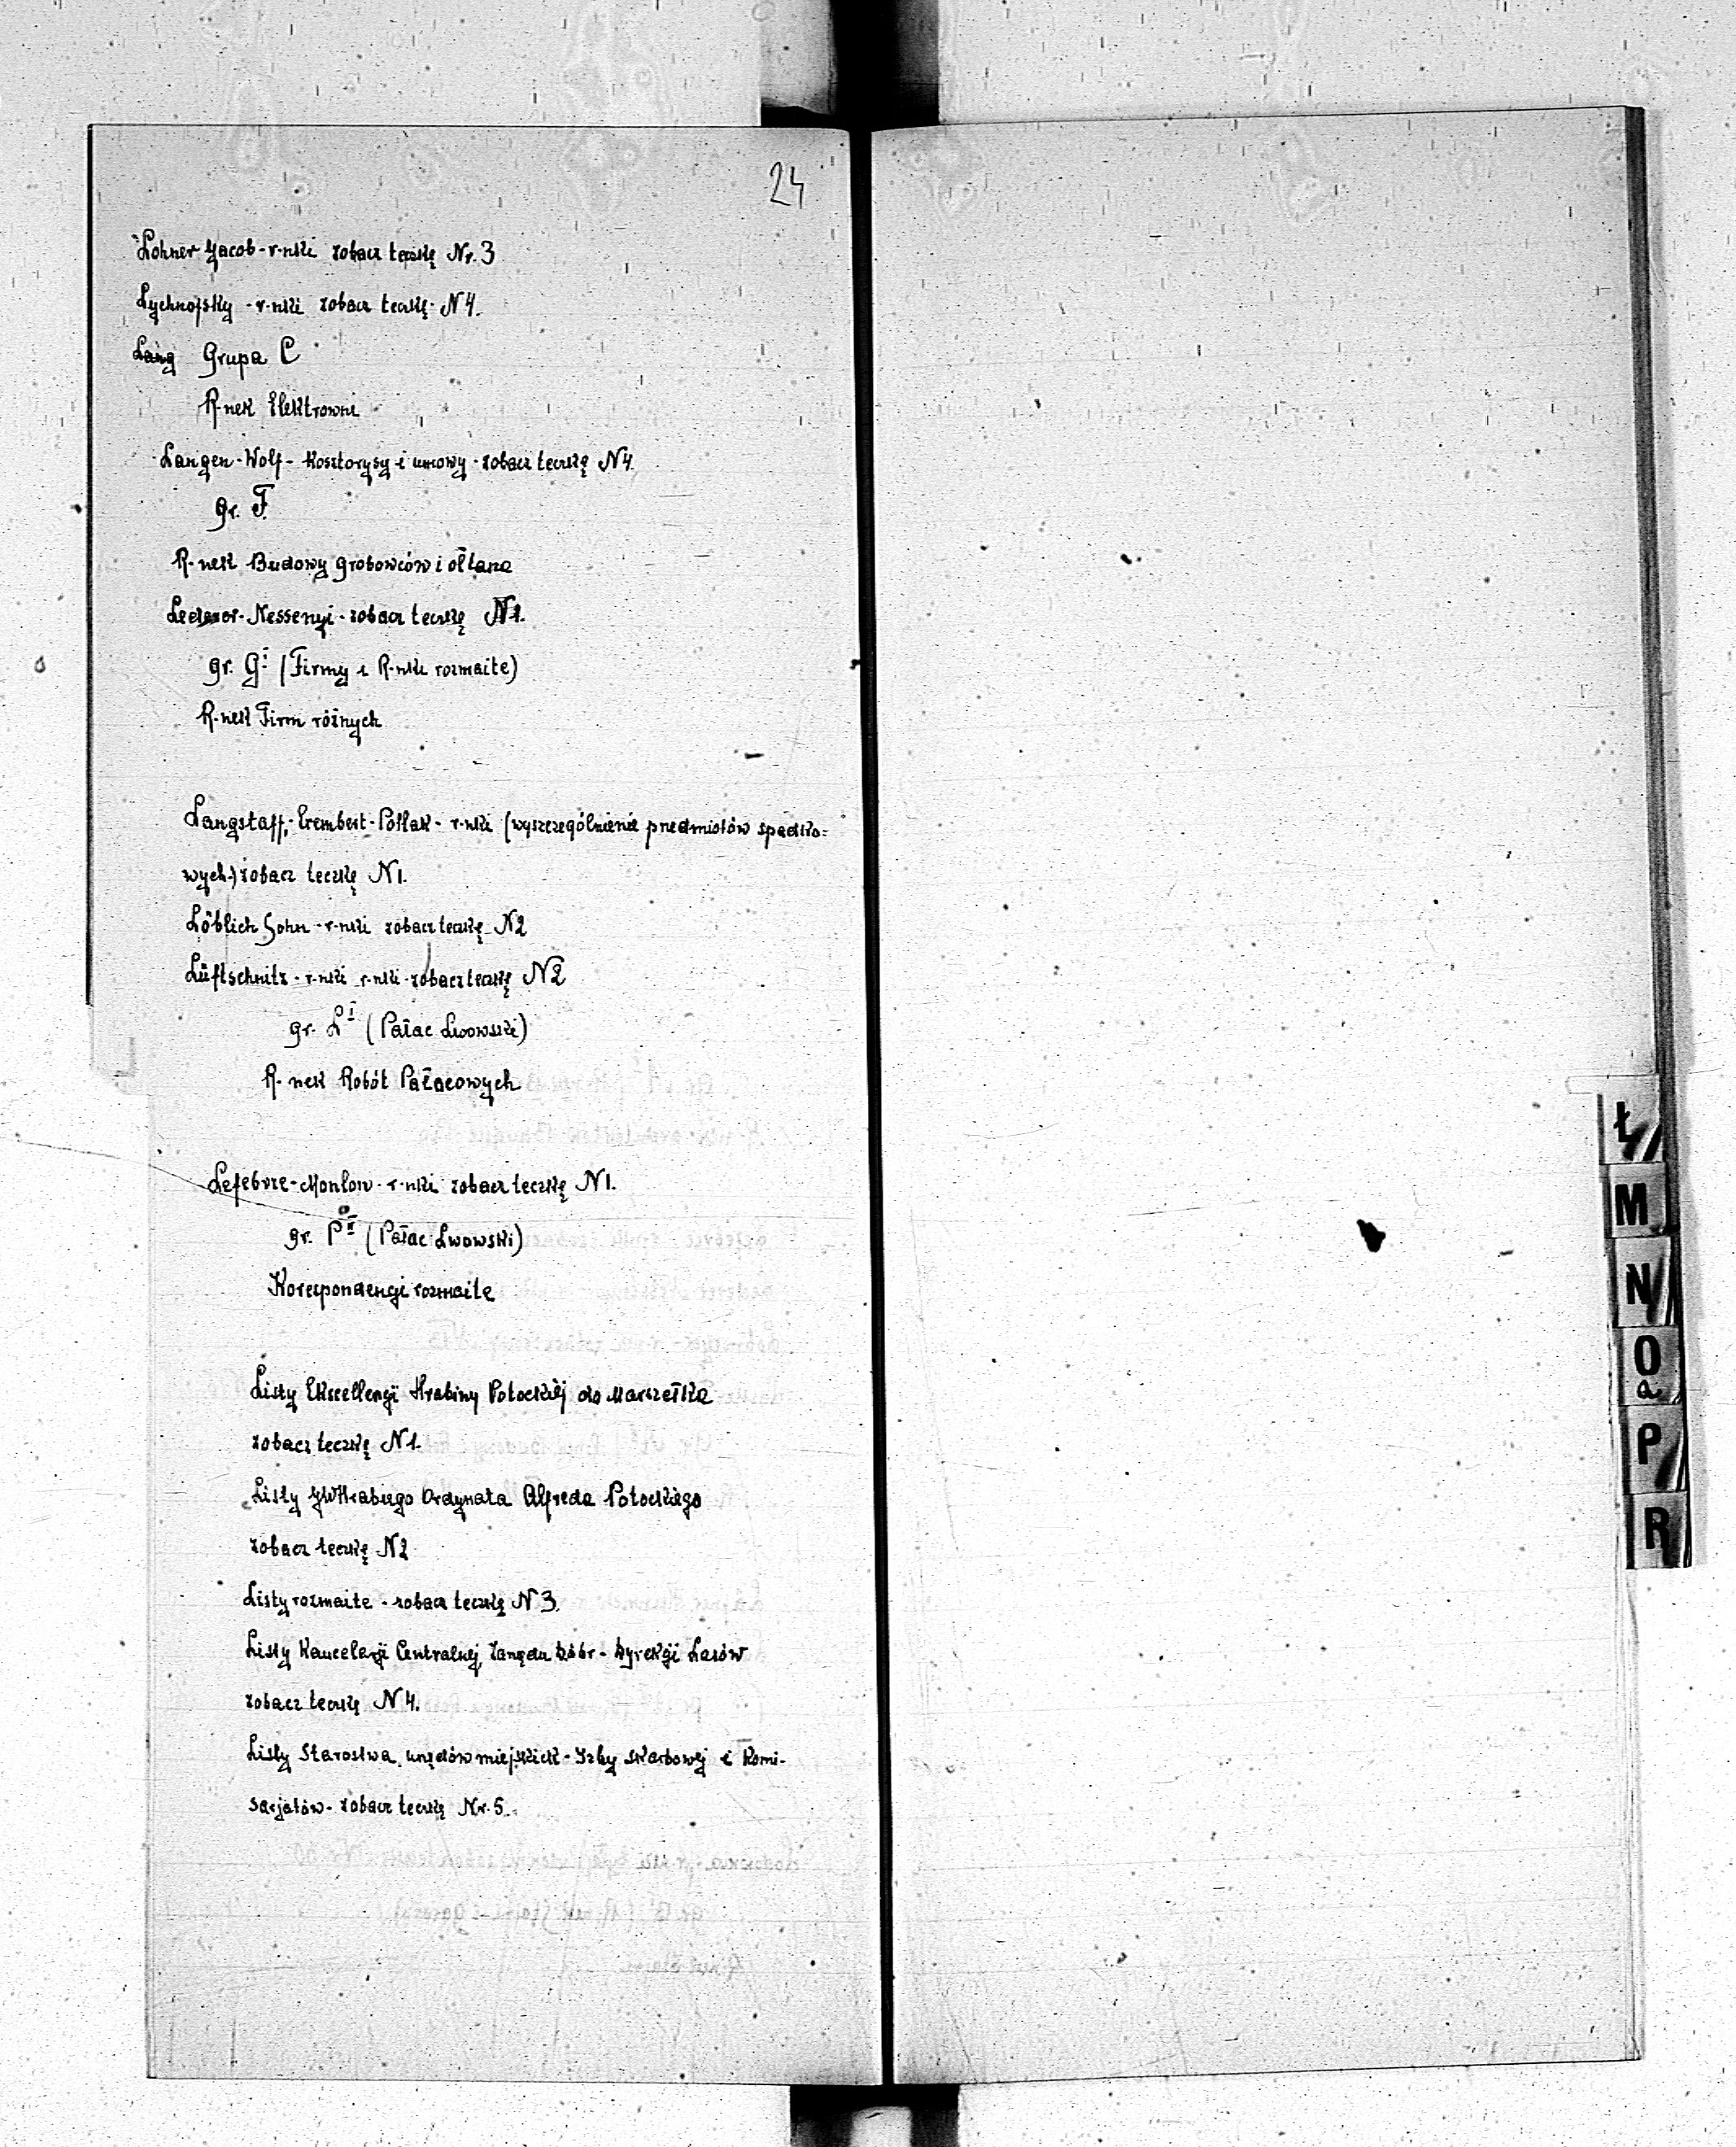 24
Lohner Jacob - r-nki zobacz teczkę Nr. 3
Lychnofsky - r-nki zobacz teczkę N 4.
Lang Grupa C
R-nek Elektrowni
Langen-Wolf - Kosztorysy i umowy - zobacz teczkę N 4.
gr. F.
R-nek Budowy grobowców i ołtarza
Lederer-Nessenyi - zobacz teczkę N 1.
gr. G I (Firmy i R-nki rozmaite)
R-nek Firm różnych
Langstaff, - Erembert - Pollak - r-nki (wyszczególnienie przedmiotów spadko=
wych) zobacz teczkę N 1.
Löblich Sohn - r-nki zobacz teczkę N 2
Lüftschnitz - r-nki r-nki - zobacz teczkę N 2
gr. L I (Pałac Lwowski)
R-nek Robót Pałacowych
Lefebvre - r-nki zobacz teczkę N 1.
gr. P II (Pałac Lwowski)
Korespondencji rozmaite
Listy Ekscellencji Hrabiny Potockiej do Marszałka
zobacz teczkę N 1.
Listy JWHrabiego Ordynata Alfreda Potockiego
zobacz teczkę N 2
Listy rozmaite - zobacz teczkę N 3.
Listy Kancelarji Centralnej, Zarządu Dóbr - Dyrekcji Lasów
zobacz teczkę N 4.
Listy Starostwa, urzędów miejskich - Izby skarbowej i Komi-
sarjatów - zobacz teczkę Nr. 5.
Ł
M
N
O
a
P
R